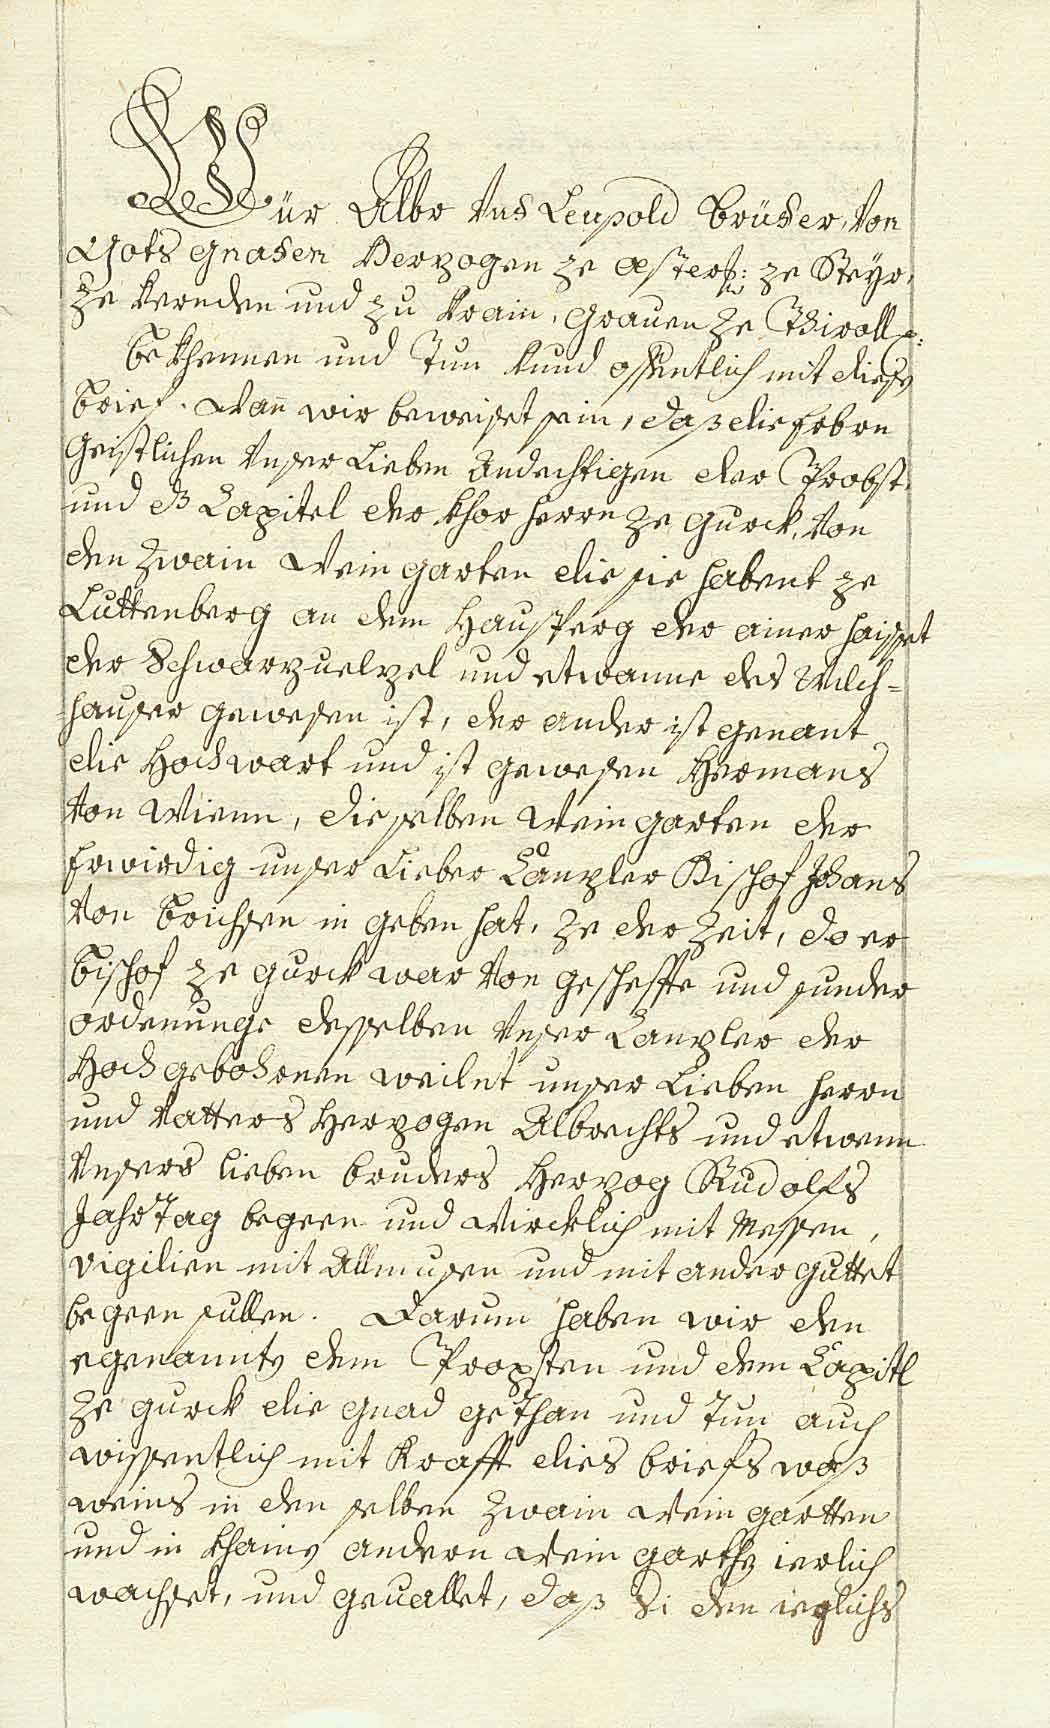 Wür Albr Vnd Leupold brüder, Von
Gots gnaden Herzogen ze Österr: ze Steyr,
ze Kernden und zu Krain, Grauen ze Thiroll p:
bekhennen und Tun kund offentlich mit diesen
brief. Wann wir beweiset sein, daß die Erbrn
Geistlichen Vnser Lieben Andechtigen der Probst.
und dz Capitel der Khor Herrn ze Gurck, Von
den zwain Wein garten die sie habent ze
Luttenberg an dem Haußperg der ainer haisset
der Schwarzuelzel und etwanne des Milch-
hauser gewesen ist, der ander ist genant
die Hochwart und ist gewesen Hermans
Von Wienn, dieselben Wein garten der
Erwirdig unser Lieber Canzler Bischof Johans
Von Brichsen in geben hat, ze der zeit, do er
Bischof ze Gurck war Von gescheffte und sunder
ordenunge desselben Vnser Canzler der
Hochgebohrnen weilnt unser Lieben Herrn
und Vatters Herzogen Albrechts und etwenn
Vnsers lieben bruders Herzog Rudolfs
Jahr Tag begeen und Wircklich mit Messen,
Vigilien mit Allmusen und mit ander guttet
begeen sullen. Darum haben wir den
egenannten dem Propsten und dem Capitl
ze Gurck die gnad gethan und Tun auch
wissentlich mit Krafft dies briefs waß
weins in den selben zwain Wein gartten
und in khainen andern Wein garthen ierlich
wachset, und geuallet, daß Si den ieglichs